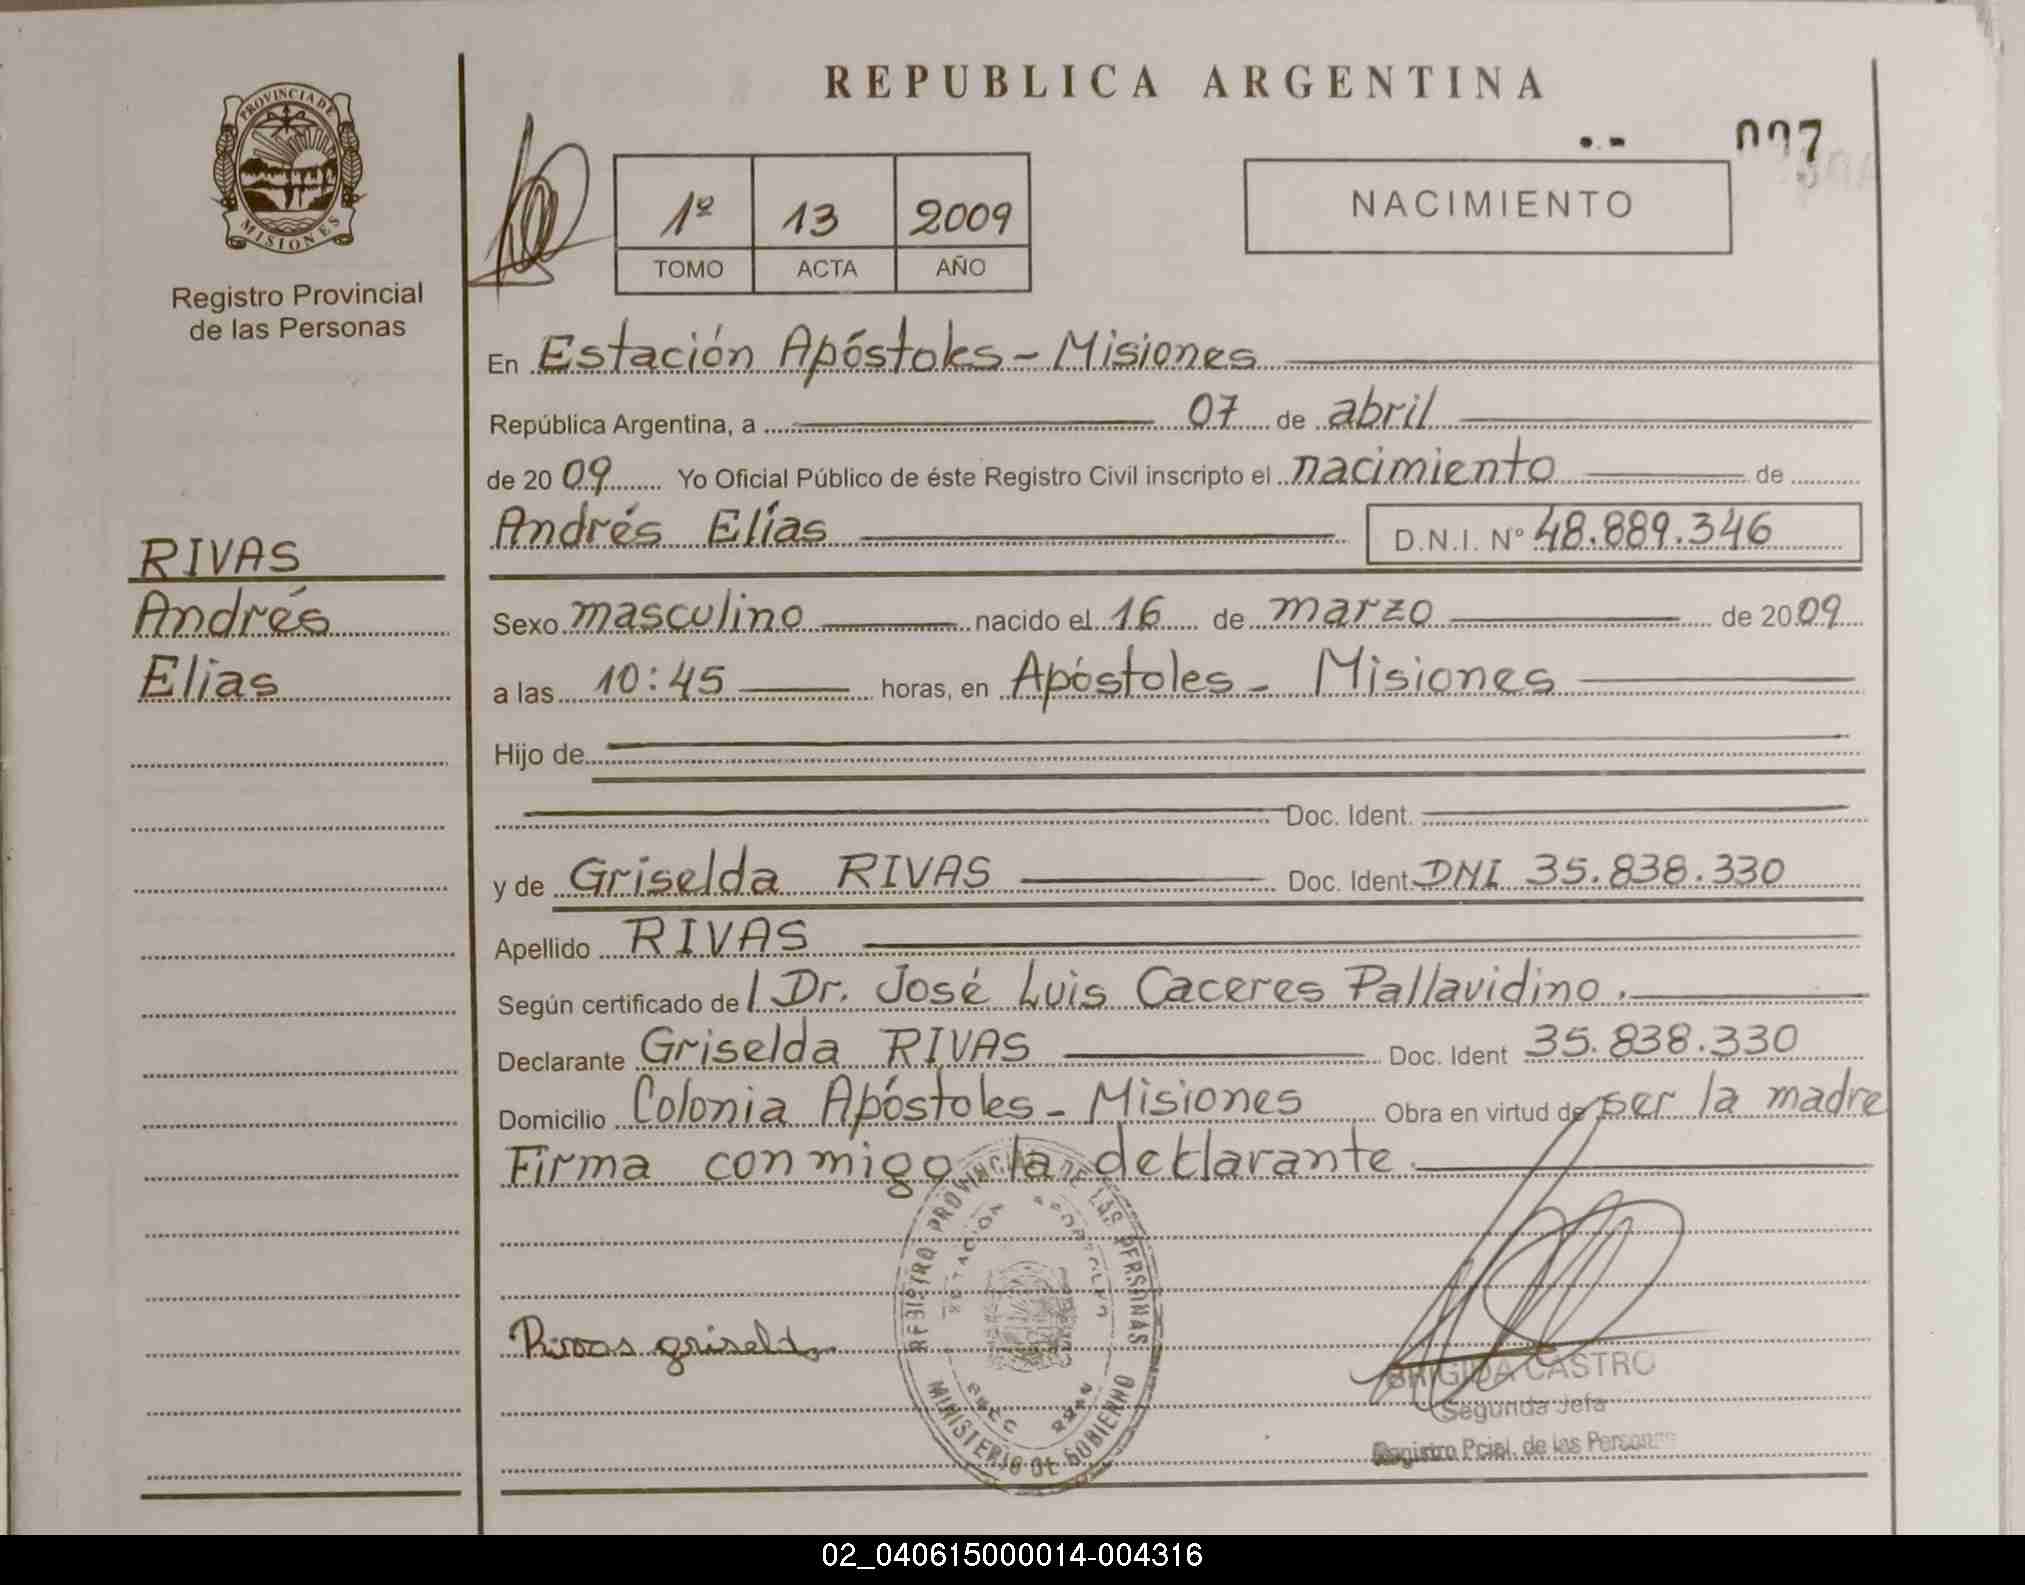 REPUBLICA ARGENTINA
PROVINCIA DE
MISIONES
Registro Provincial
de las Personas
007
1º 13 2009
TOMO ACTA AÑO
NACIMIENTO
En Estación Apóstoles - Misiones
República Argentina, a 07 de abril
de 2009 Yo Oficial Público de éste Registro Civil inscripto el nacimiento de
Andrés Elías D.N.I. Nº 48.889.346
RIVAS
Andrés
Elias
Sexo masculino nacido el 16 de marzo de 2009
a las 10:45 horas, en Apóstoles - Misiones
Hijo de
Doc. Ident.
y de Griselda RIVAS Doc. Ident. DNI 35.838.330
Apellido RIVAS
Según certificado del Dr. José Luis Caceres Pallavidino.
Declarante Griselda RIVAS Doc. Ident 35.838.330
Domicilio Colonia Apóstoles - Misiones Obra en virtud de ser la madre
Firma conmigo la declarante.
REGISTRO PROVINCIAL DE LAS PERSONAS
ESTACIÓN APOSTOLES
MINISTERIO DE GOBIERNO
Rivas griselda
BRIGIDA CASTRO
Segunda Jefa
Registro Pcial. de las Personas
02_040615000014-004316